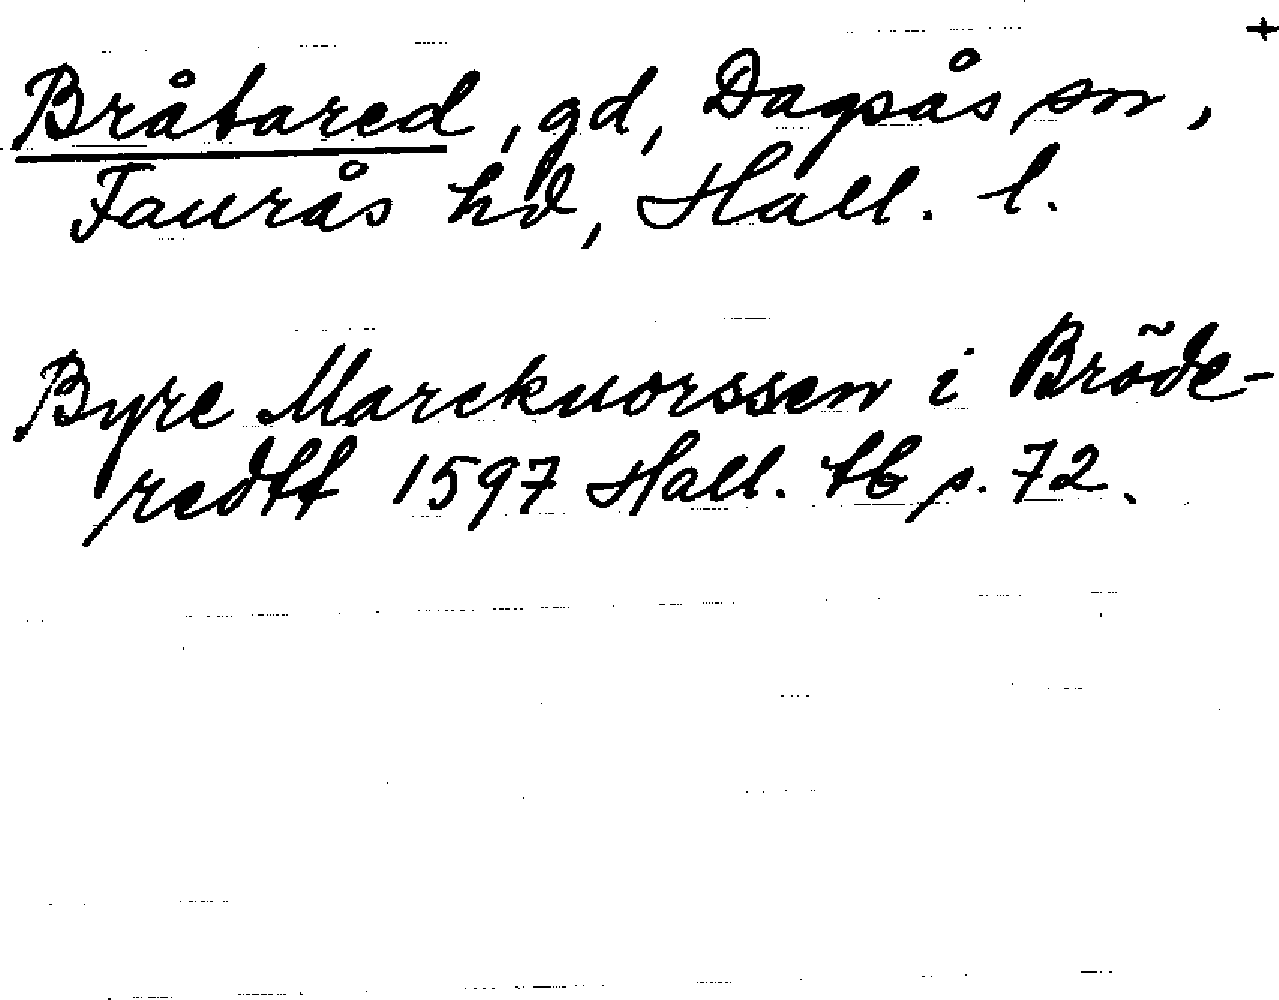 +
Bråtared, gd, Dagsås sn,
Faurås hd, Hall. l.
Byre Marckuorssen i Brõde-
redtt 1597 Hall. tb s. 72.